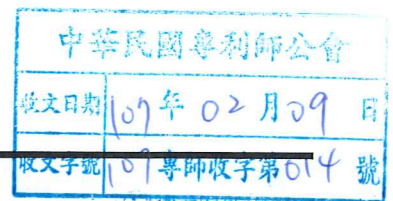 中華民國專利師公會
收文日期 107年02月09日
收文字號 109專師收字第014號